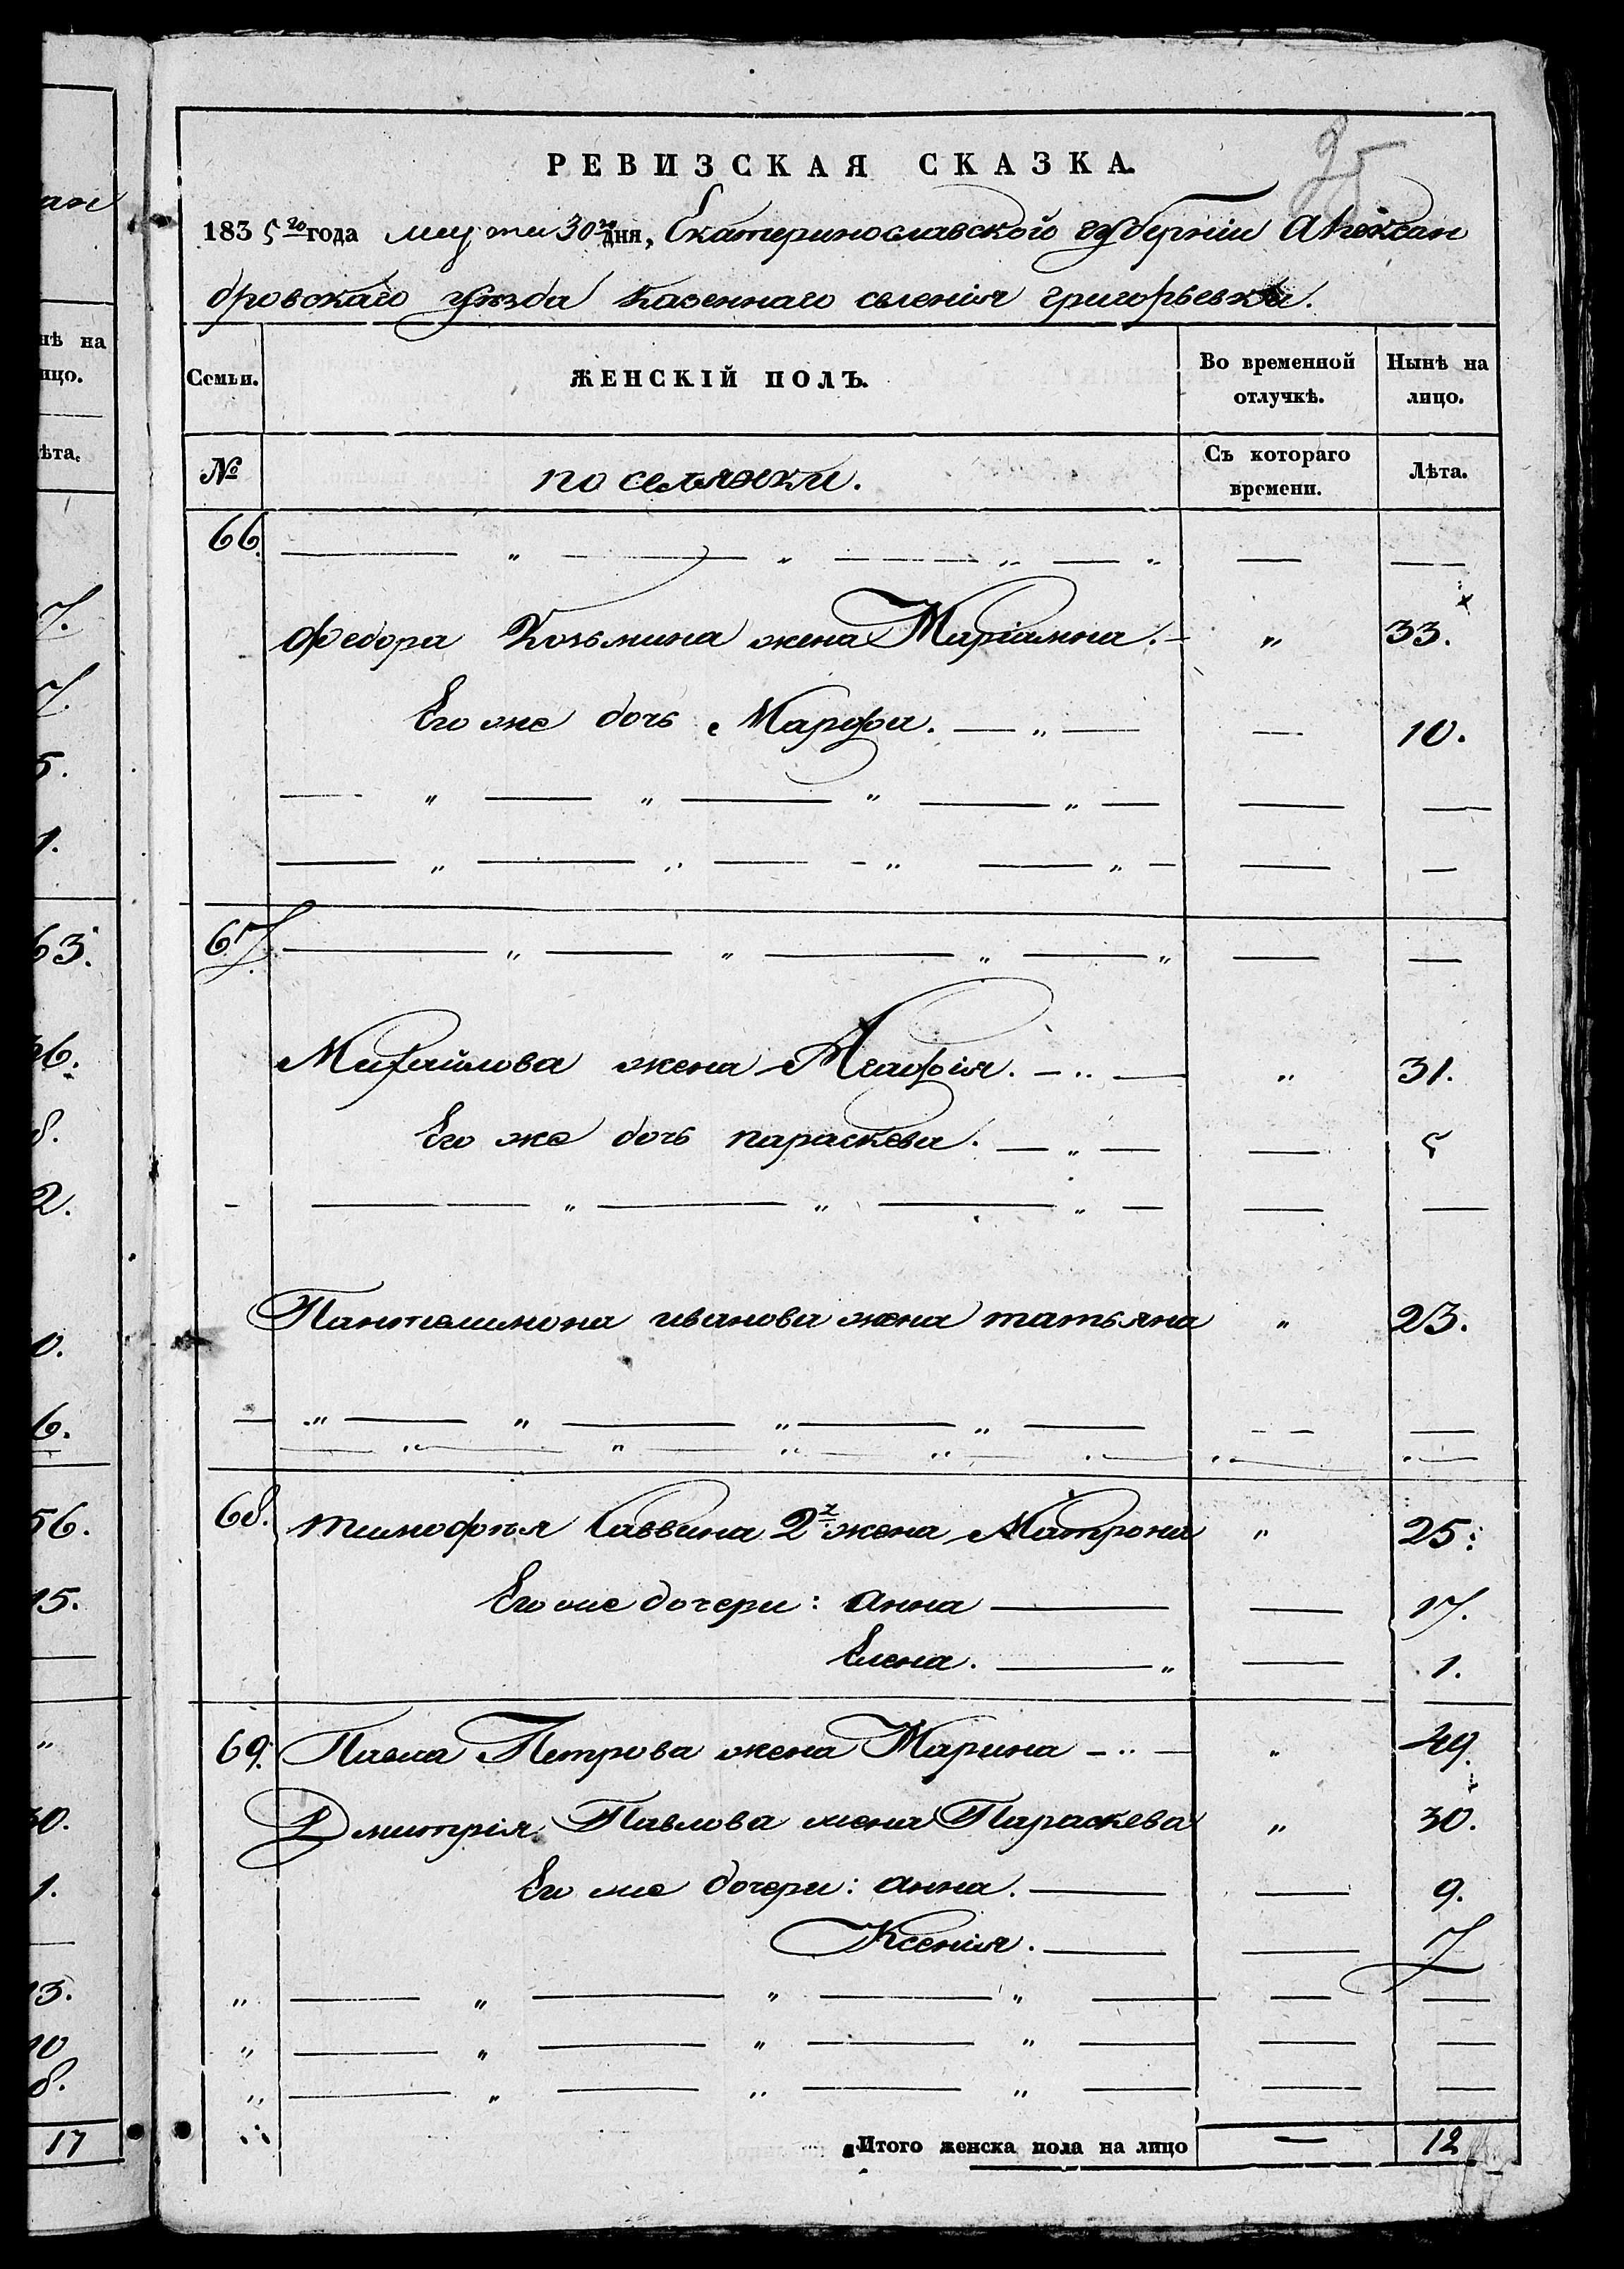 25
РЕВИЗСКАЯ СКАЗКА.
1835го года маія 30го дня, Екатеринославской губерніи Александ
бровскаго уѣзда казеннаго селенія григорьевки.
Семьи. ЖЕНСКІЙ ПОЛЪ. Во временной отлучкѣ. Нынѣ на лицо.
№ поселянки. Съ котораго времени. Лѣта.
66. — " — " — " — " — —
Федора Козьмина жена Маріанна. — " 33.
Его же дочь Марфа. — " — — 10.
— " — " — " — " — — —
— " — " — " — " — — —
67. — " — " — " — " — —
Михайлова жена Агафія. — " — " 31.
Его же дочь параскева. — " — — 5
— — " — " — " — — —
Пантелимона иванова жена татьяна " 23.
— " — " — " — " — — —
— " — " — " — " — " — " —
68. тимофѣя Саввина 2я жена Матрона " 25.
Его же дочери: анна — — 17.
Елена. — " — 1.
69. Павла Петрова жена Марина — " — " 49.
Дмитрія Павлова жена Параскева " 30.
Его же дочери: анна. — — 9.
Ксенія. — — 7
" — " — " — " — — —
" — " — " — " — — —
" — " — " — " — — —
Итого женска пола на лицо — 12
ан
нѣ на
ицо.
ѣта.
7.
7.
5.
1.
63.
36.
8.
2.
0.
6.
56.
15.
—
"
30.
1.
—
13.
10
8.
17